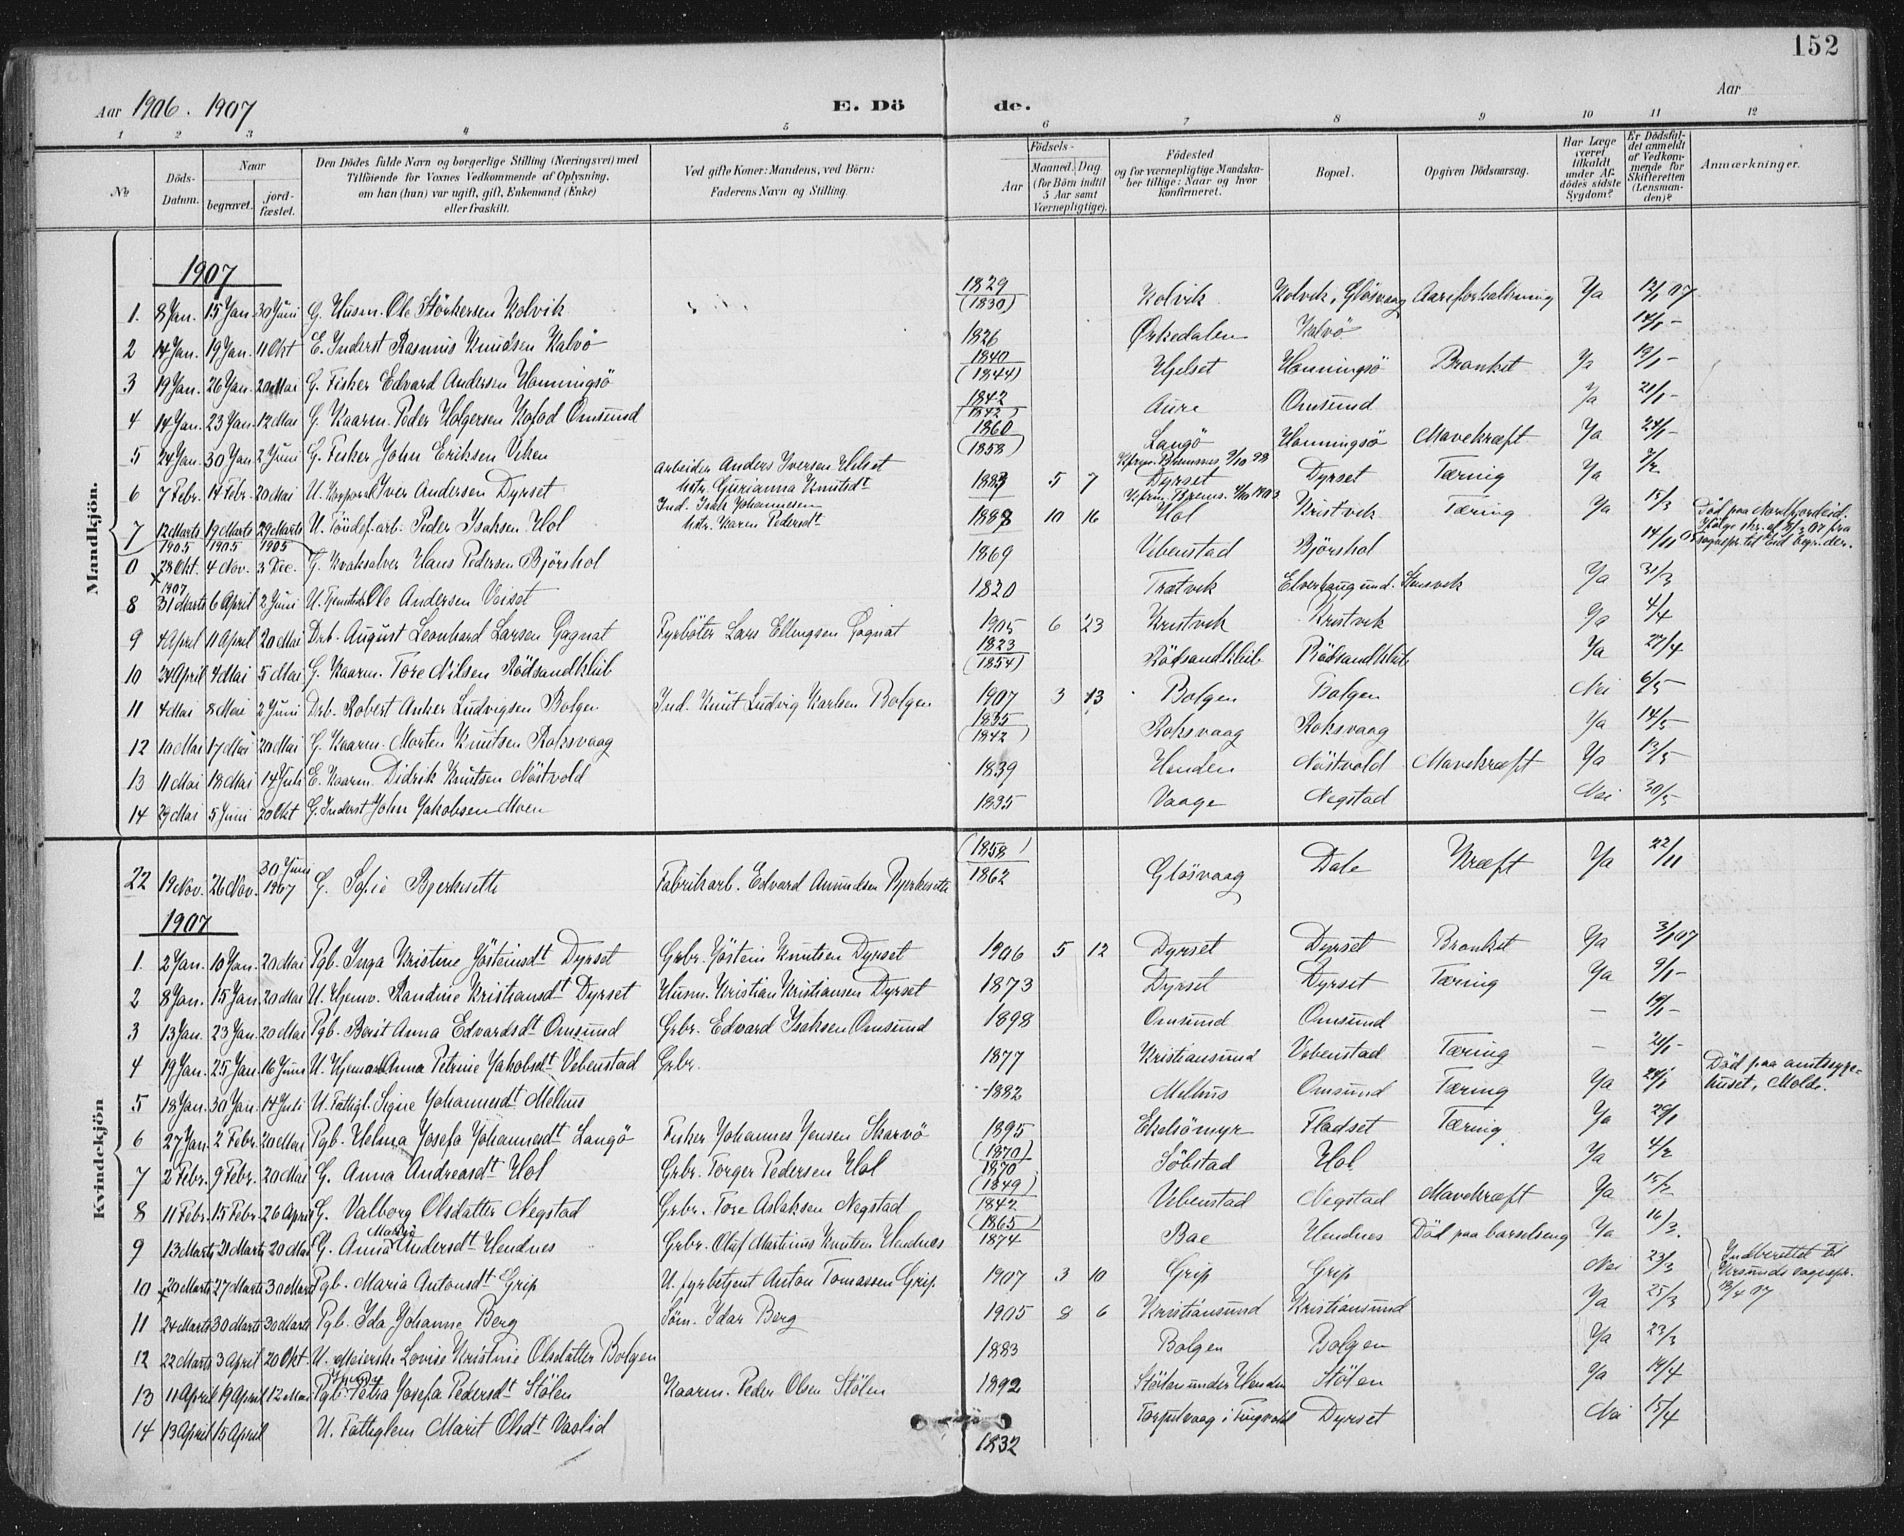 152
Aar 1906. 1907 E. Dö de. Aar
1 2 3 4 5 6 7 8 9 10 11 12
No Döds-Datum. Naar begravet. jord-fæstet. Den Dödes fulde Navn og borgerlige Stilling (Næringsvei) med Tilföiende for Voxnes Vedkommende af Oplysning, om han (hun) var ugift, gift, Enkemand (Enke) eller fraskilt. Ved gifte Koner: Mandens, ved Börn: Faderens Navn og Stilling. Födsels- Aar Maaned. Dag (for Börn indtil 5 Aar samt Værnepligtige). Födested og for værnepligtige Mandska-ber tillige: Naar og hvor konfirmeret. Bopæl. Opgiven Dödsaarsag. Har Læge været tilkaldt under Af-dödes sidste Sygdom? Er Dödsfal-det anmeldt af Vedkom-mende for Skifteretten (Lensman-den)? Anmærkninger.
Mandkjön.
1907
1. 8 Jan. 15 Jan. 30 Juni G. Husm. Ole Störkersen Kolvik 1829 (1830) Kolvik Kolvik, Glösvaag Aareforkalkning Ja 12/1 07
2 14 Jan. 19 Jan. 11 Okt E. Inderst Rasmus Knudsen Kalvö 1826 Ørkedalen Kalvö 14/1 -
3 19 Jan. 26 Jan. 20 Mai G. Fisker Edvard Andersen Honningsö 1840 (1844) Hjelset Honningsö Bronkit Ja 19/1 -
4 14 Jan. 23 Jan. 12 Mai G. Kaarm. Peder Holgersen Kofod Omsund 1842 (1842) Aure Omsund Ja 21/1 -
5 24 Jan. 30 Jan. 2 Juni G. Fisker John Eriksen Viken 1860 (1858) Langö Honningsö Mavekræft Ja 24/1 -
6 7 Febr. 14 Febr. 20 Mai U. Korporal Iver Andersen Dyrset Arbeider Anders Iversen Helset Hstr. Gurianna Knutsdt 1883 5 7 Dyrset Dyrset Tæring Ja 9/2
7 12 Marts 19 Marts 29 Marts U. Töndef. arb. Peder Isaksen Hol Ind. Isak Johannesen Hstr. Karen Pedersdt 1888 10 16 Hol Kristvik Tæring Ja 15/3 Död paa Nordfjordeid.
0 1905 28 Okt. 1905 4 Nov. 1905 3 Dec. G. Kvaksalver Hans Pedersen Bjørshol 1869 Vebenstad Bjørshol 14/11 05
8 1907 31 Marts 6 April 2 Juni U. Ole Andersen Veiset 1820 Trætvik Elverhaug und. Stensvik Ja 31/3
9 4 April 11 April 20 Mai Drb. August Leonhard Larsen Gagnat Fyrböter Lars Ellingsen Gagnat 1905 6 23 Kristvik Kristvik Ja 4/4
10 24 April 4 Mai 5 Mai G. Kaarm. Tore Nilsen Rödsandklub 1823 (1854) Rödsandklub Rödsandklub Ja 27/4
11 4 Mai 8 Mai 2 Juni Drb. Robert Anker Ludvigsen Bolgen Ind. Knut Ludvig Karlsen Bolgen 1907 3 13 Bolgen Bolgen Nei 6/5
12 10 Mai 17 Mai 20 Mai G. Kaarm. Morten Knutsen Roksvaag 1835 (1842) Roksvaag Roksvaag Ja 14/5
13 11 Mai 18 Mai 14 Juli E. Kaarm. Didrik Knutsen Nöstvold 1839 Henden Nöstvold Mavekræft Ja 13/5
14 29 Mai 5 Juni 20 Okt G. Inderst John Jakobsen Moen 1835 Vaage Negstad Nei 30/5
Kvindekjön
22 19 Nov. 26 Nov. 30 Juni 1907 G. Sofie Bjerkesette Fabrikarb. Edvard Amundsen Bjerkesette (1858) 1862 Glösvaag Dale Kræft Ja 22/11
1907
1. 2 Jan. 10 Jan. 20 Mai Pgb. Inga Kristine Jösteinsdt Dyrset Grbr. Jöstein Knutsen Dyrset 1906 5 12 Dyrset Dyrset Bronkit Ja 3/1 07
2 8 Jan. 15 Jan. 20 Mai U. Hjemv. Randine Kristiansdt Dyrset Husm. Kristian Kristiansen Dyrset 1873 Dyrset Dyrset Tæring Ja 9/1 -
3 13 Jan. 23 Jan. 20 Mai Pgb. Berit Anna Edvardsdt Omsund Grbr. Edvard Isaksen Omsund 1898 Omsund Omsund — 19/1 -
4 19 Jan. 25 Jan. 16 Juni U. Anna Petrine Jakobsdt Vebenstad Grbr. 1877 Kristiansund Vebenstad Tæring — 21/1 -
5 18 Jan. 30 Jan. 14 Juli U. Fattigl. Signe Johannesdt Melhus 1882 Melhus Omsund Tæring Ja 24/1 Död paa amtssyge-huset, Molde.
6 27 Jan. 2 Febr. 20 Mai Pgb. Helma Josefa Johannesdt Langö Fisker Johannes Jensen Skarvö 1895 Ekelsömyr Fladset Tæring Ja 29/1
7 2 Febr. 9 Febr. 20 Mai G. Anna Andreasdt Hol Grbr. Torger Pedersen Hol (1870) 1870 Söbstad Hol Ja 4/2
8 11 Febr. 15 Febr. 26 April G. Valborg Olsdatter Negstad Grbr. Tore Aslaksen Negstad (1849) 1842 Vebenstad Negstad Mavekræft Ja 15/2
9 13 Marts 21 Marts 20 Mai G. Anna Andersdt Hendnes Grbr. Oluf Martinus Knutsen Hendnes (1865) 1874 Bae Hendnes Död paa barselseng Ja 16/3
10 20 Marts 27 Marts 30 Marts Pgb. Maria Antonsdt Grip U. fyrbetjent Anton Tomassen Grip 1907 3 10 Grip Grip Nei 23/3 Indberettet til
11 24 Marts 30 Marts 30 Marts Pgb. Ida Johanne Berg Sörn. Idar Berg 1905 8 6 Kristiansund Kristiansund Ja 25/3
12 22 Marts 3 April 20 Okt. U. Meierske Lovise Kristine Olsdatter Bolgen 1883 Bolgen Bolgen Ja 23/3
13 11 April 19 April 12 Mai Pgb. Petra Josefa Pedersdt Stölen Kaarm. Peder Olsen Stölen 1892 Stölen under Henden Stölen Ja 14/4
14 13 April 15 April U. Fatteglem Marit Olsdt Vaslid 1832 Torjulvaag i Tingvold Dyrset Nei 15/4